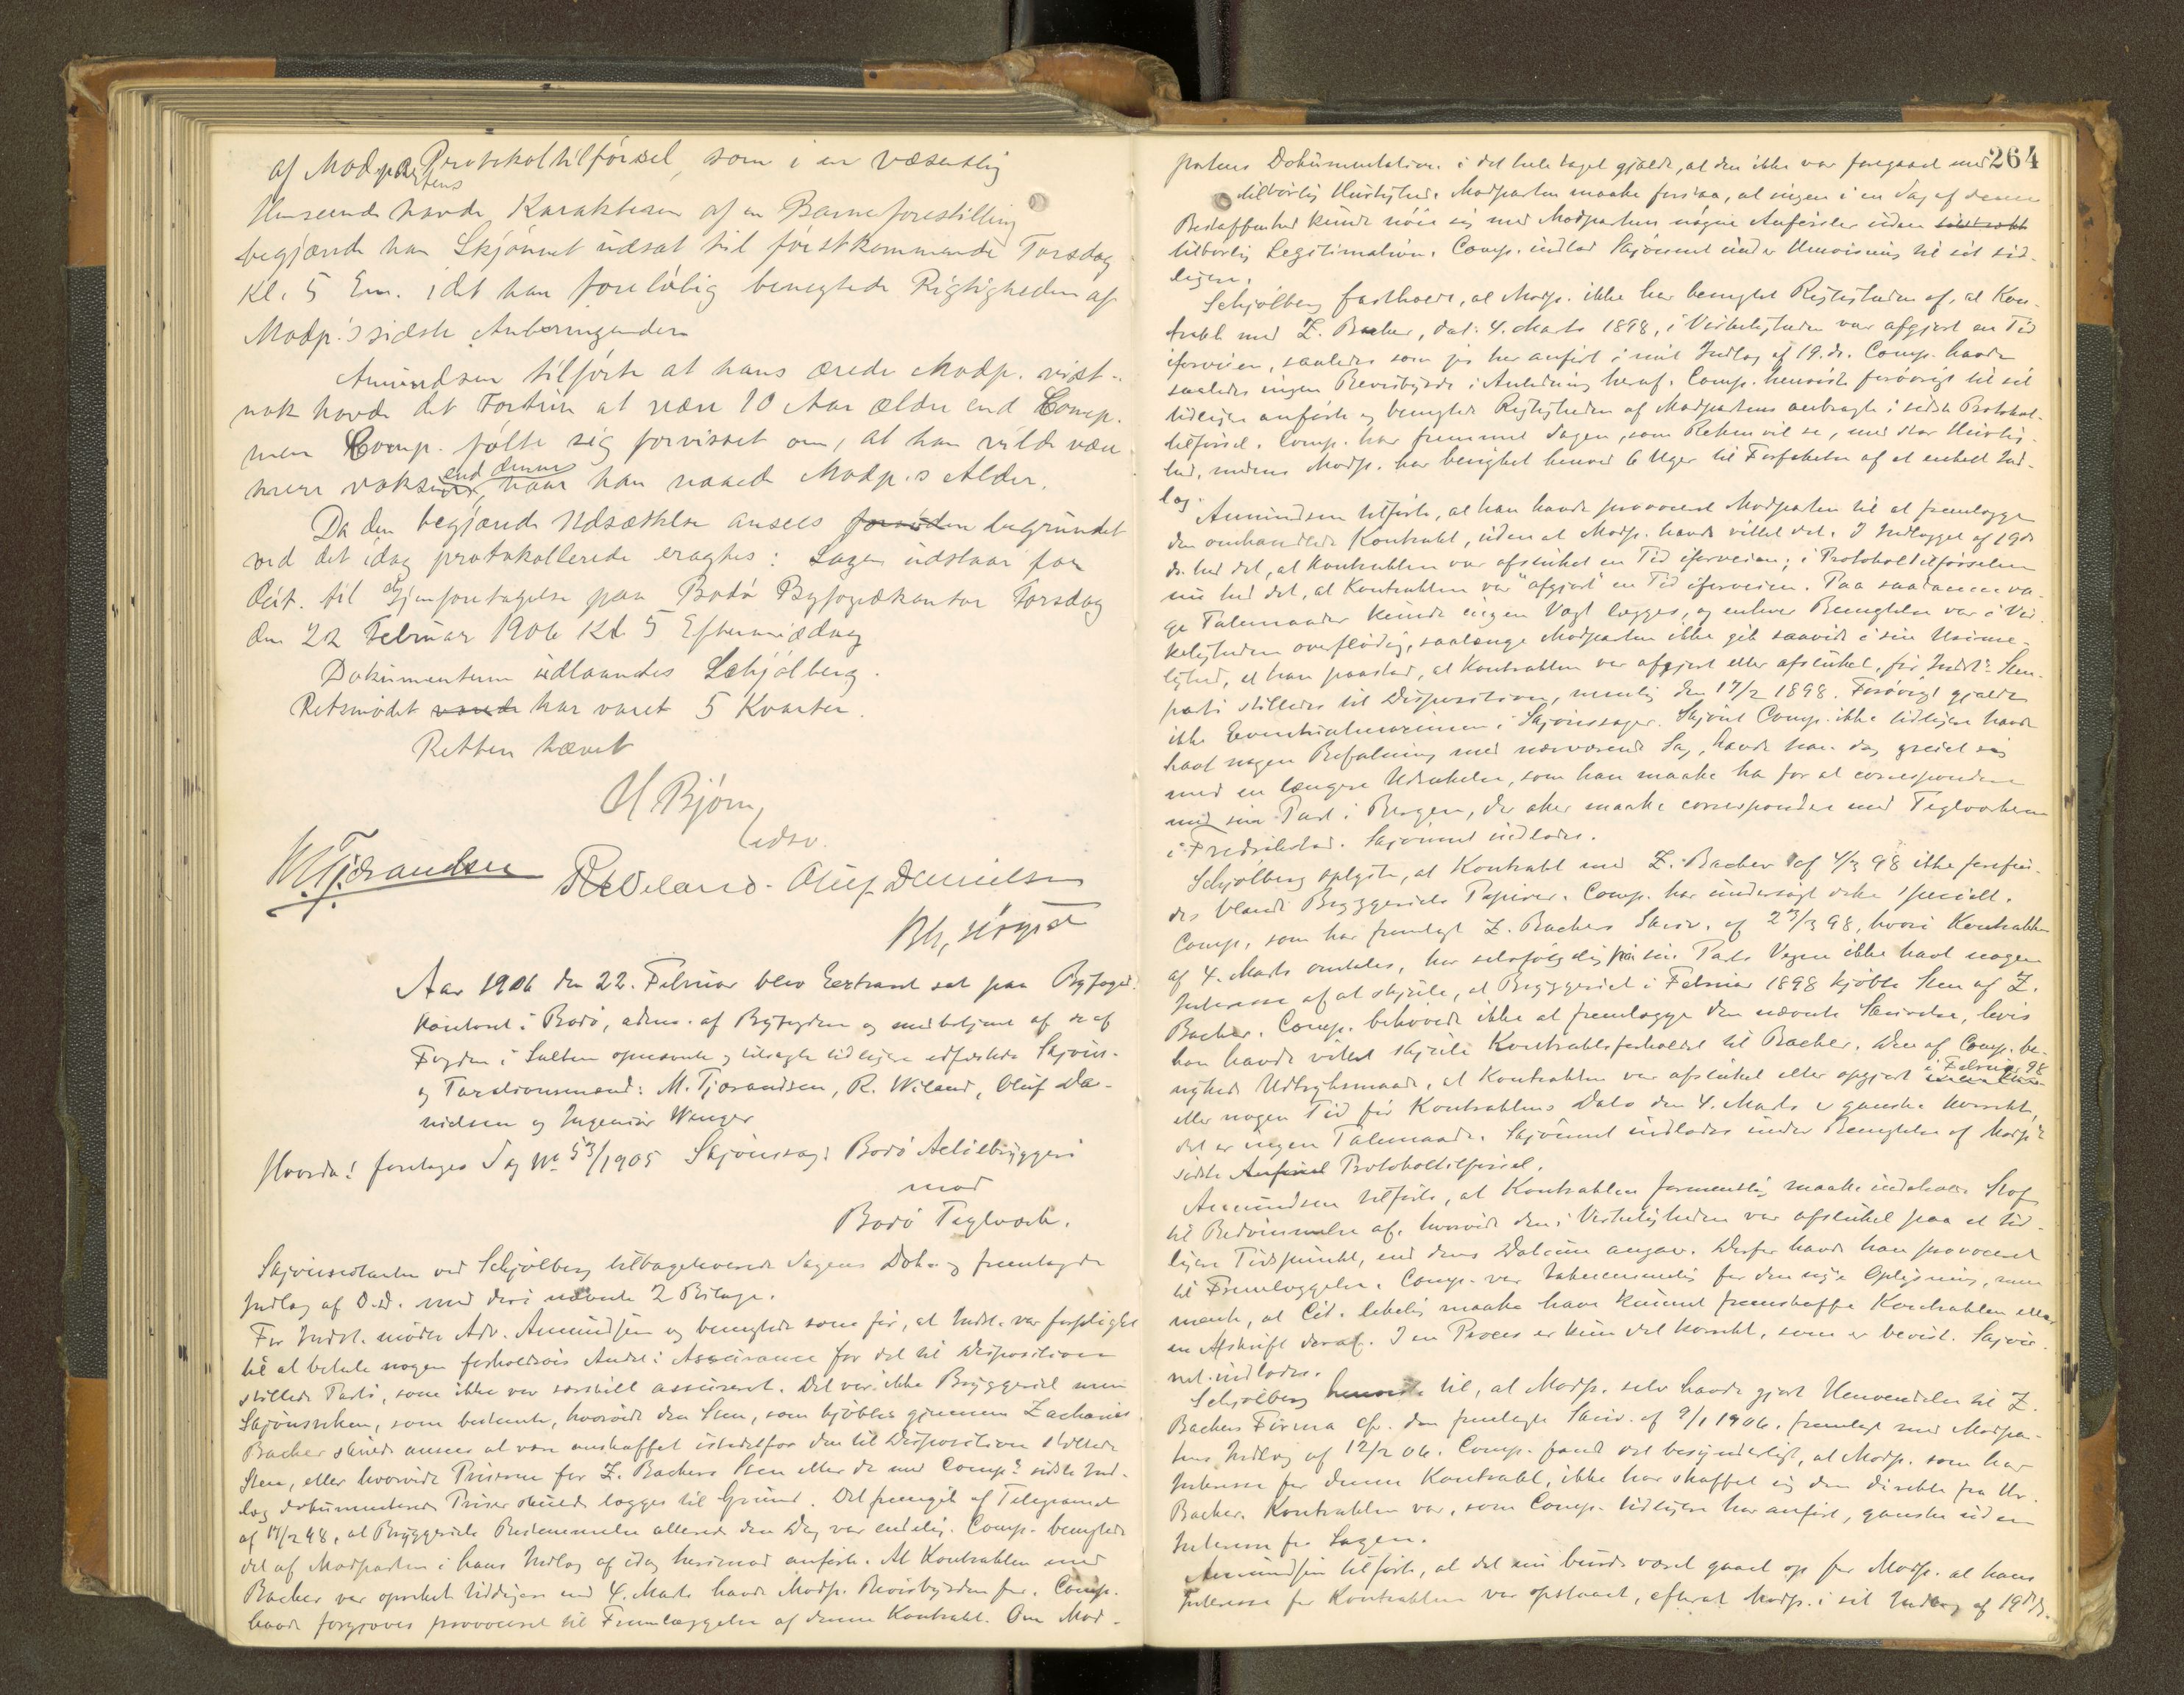 af Modpartens Protokoltilførsel, som i en væsentlig
Henseende havde Karakteren af en Barneforestilling
begjærede han Skjønnet udsat til førstkommende Torsdag
Kl. 5 Em. idet han foreløbig benegtede Rigtigheden af
Modp.'s sidste Anbringender
Amundsen tilførte at hans ærede Modp. vist-
nok havde det Fortrin at være 10 Aar ældre end Comp.
men Comp. følte sig forvisset om, at han vilde være
mere voksen end denne, naar han naaede Modp.s Alder.
Da den begjærede Udsættelse ansees begrundet
ved det idag protokollerede eragtes: Sagen udstaar paa
Cit. til Gjenforetagelse paa Bodø Byfogedkontor Torsdag
den 22 Februar 1906 Kl. 5 Eftermiddag
Dokumenterne udlaandes Schjølberg.
Retsmødet har varet 5 Kvarter.
Retten hævet
H Bjørn
edsv.
M. Tjærandsen R Weiland. Oluf Danielsen
Aar 1906 den 22. Februar blev Extraret sat paa Byfoged-
kontoret i Bodø, adm. af Byfogden og medbetjent af de af
Fogden i Salten opnævnte og tilsagte tidligere edfæstede Skjøns-
og Taxtionsmænd: M. Tjærandsen, R. Wiland, Oluf Da-
nielsen og Ingeniør Wenger
Hvorda: foretages Sag No 53/1905 Skjønssag: Bodø Actiebryggeri
mod
Bodø Teglværk.
Skjønsretten ved Schjølberg tilbageleverede Sagens Dok. og fremlagde
Indlæg af D.D. med deri nævnte 2 Bilage.
For Indst. mødte Adv. Amundsen og benegtede som før, at Indst. var forpligtet
til at betale nogen forholdsvis Andel i Assurance for det til Disposition
stillede Parti, som ikke var særskilt assureret. Det var ikke Bryggeriet men
Skjønsretten, som bestemte, hvorvidt den Sten, som kjøbtes gjennem Zacharias
Backer skulde ansees at være anskaffet istedetfor den til Disposition stillede
Sten, eller hvorvidt Priserne for Z. Backers Sten eller de med Comp's sidste Ind-
læg dokumenterede Priser skulde lægges til Grund. Det fremgik af Telegrammet
af 17/2 98, at Bryggeriets Bestemmelse allerede den Dag var endelig. Comp. benegtede
det af Modparten i hans Indlæg af idag herimod anførte. At Kontrakten med
Backer var oprettet tidligere end 4. Marts havde Modp. Bevisbyrden for. Comp.
havde forgjæves provoceret til Fremlæggelse af denne Kontrakt. Om Mod-
264
partens Dokumentation i det hele taget gjaldt, at den ikke var foregaaet med
tilbørlig Hurtighed. Modparten maatte forstaa, at ingen i en Sag af denne
Beskaffenhed kunde nøie sig med Modpartens nøgne Anførsler uden
tilbørlig Legitimation. Comp. indlod Skjønnet under Henvisning til sit tid-
ligere.
Schjølberg fastholdt, at Modp. ikke har benegtet Rigtigheden af, at Kon-
trakt med Z. Backer, dat. 4. Marts 1898, i Virkeligheden var afgjort en Tid
iforveien, saaledes som jeg har anført i mit Indlæg af 19. ds. Comp. havde
saaledes ingen Bevisbyrde i Anledning heraf. Comp. henviste forøvrigt til sit
tidligere anførte og benegtede Rigtigheden af Modpartens anbragte i sidste Protokol-
tilførsel. Comp. har fremmet Sagen, som Retten vil se, med stor Hurtig-
hed, medens Modp. har benyttet henved 6 Uger til Forfattelse af et enkelt Ind-
læg.
Amundsen tilførte, at han havde provoceret Modparten til at fremlægge
den omhandlede Kontrakt, uden at Modp. havde villet det. I Indlægget af 19de
ds. hed det, at Kontrakten var afsluttet en Tid iforveien; i Protokoltilførselen
nu hed det, at Kontrakten var "afgjort" en Tid iforveien. Paa saadanne va-
ge Talemaader kunde ingen Vægt lægges, og enhver Benegtelse var i Vir-
keligheden overflødig, saalænge Modparten ikke gik saavidt i sin Usime-
lighed, at han paastod, at Kontrakten var afgjort eller afsluttet, før Indst's Sten-
parti stilledes til Disposition, nemlig den 17/2 1898. Forøvrigt gjaldt
ikke Eventualmaximen i Skjønssager. Skjønt Comp. ikke tidligere havde
havt nogen Befatning med nærværende Sag, havde han dog greiet sig
med en længere Udsættelse, som han maatte ha for at correspondere
med sin Part i Bergen, der atter maatte correspondere med Teglværkerne
i Fredrikstad. Skjønnet indlodes.
Schjølberg oplyste, at Kontrakt med Z. Backer af 4/3 98 ikke forefin-
des blandt Bryggeriets Papirer. Comp. har undersøgt dette specielt.
Comp., som har fremlagt Z. Backers Skriv. af 23/3 98, hvori Kontrakten
af 4. Marts omtales, har selvfølgelig paa sin Parts Vegne ikke havt nogen
Interesse af at skjule, at Bryggeriet i Februar 1898 kjøbte Sten af Z.
Backer. Comp. behøvede ikke at fremlægge den nævnte Skrivelse, hvis
han havde villet skjule Kontraktsforholdet til Backer. Den af Comp. be-
nyttede Udtryksmaade, at Kontrakten var afsluttet eller opgjort i Februar 98
eller nogen Tid før Kontraktens Dato den 4. Marts er ganske korrekt,
det er ingen Talemaade. Skjønnet indlodes under Benegtelse af Modp's
sidste Protokoltilførsel.
Amundsen tilførte, at Kontrakten formentlig maatte indeholde Stof
til Bedømmelse af, hvorvidt den i Virkeligheden var afsluttet paa et tid-
ligere Tidspunkt, end dens Datum angav. Derfor havde han provoceret
til Fremlæggelse. Comp. var taknemmelig for den nye Oplysning, men
mente, at Cit. ligelig maatte have kunnet fremskaffe Kontrakten eller
en Afskrift deraf. I en Proces er kun det korrekt, som er bevist. Skjøn-
net indlodes.
Schjølberg henviste til, at Modp. selv havde gjort Henvendelse til Z.
Backers Firma cfr. den fremlagte Skriv. af 9/1 1906, fremlagt med Modpar-
tens Indlæg af 12/2 06. Comp. fandt det besynderligt, at Modp. som har
Interesse for denne Kontrakt, ikke har skaffet sig den direkte fra Hr.
Backer. Kontrakten var, som Comp. tidligere har anført, ganske uden
Interesse for Sagen.
Amundsen tilførte, at det nu burde været gaaet op for Modp. at hans
Interesse for Kontrakten var opstaaet, efterat Modp. i sit Indlæg af 19de ds.